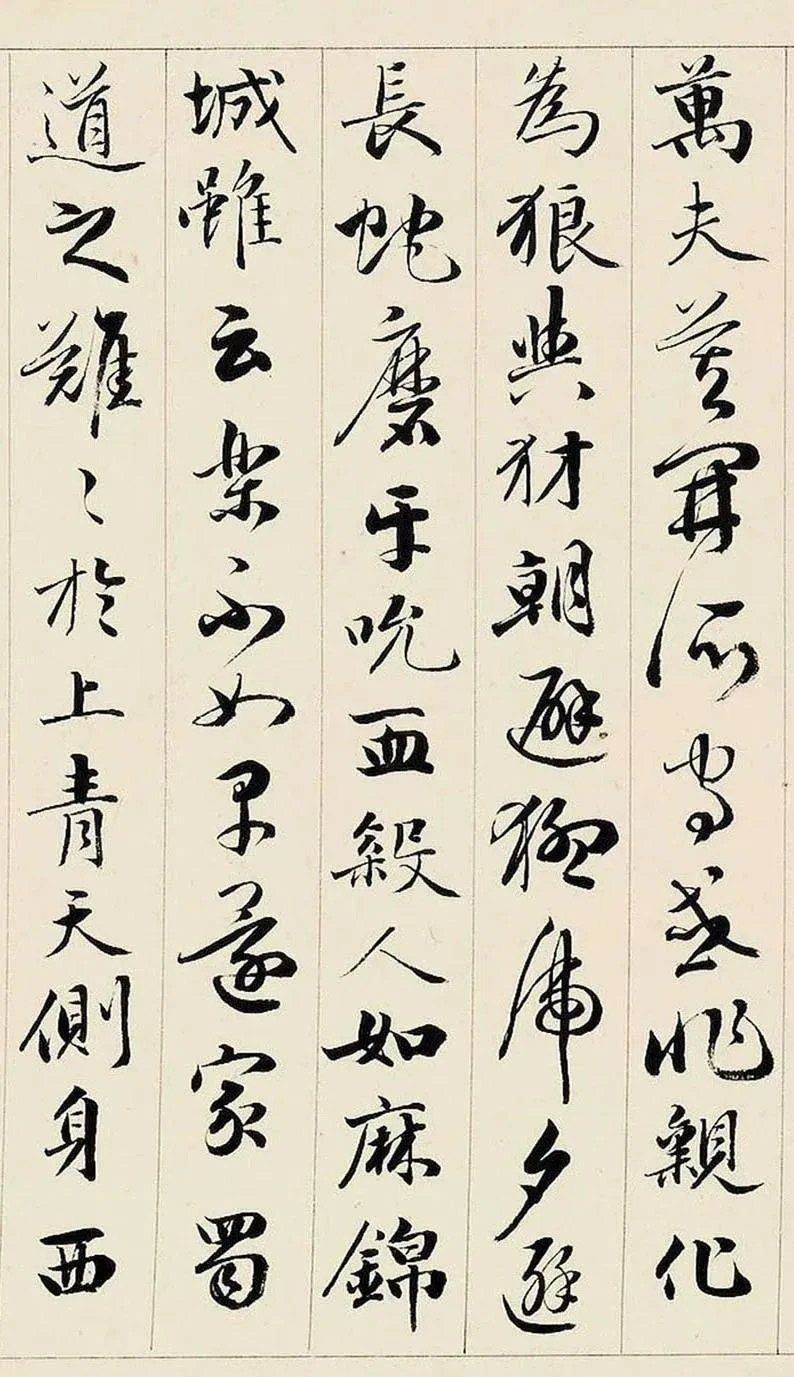 萬夫莫開所守或非親化
為狼與豺朝避猛虎夕避
長蛇磨牙吮血殺人如麻錦
城雖云樂不如早還家蜀
道之難〻於上青天側身西